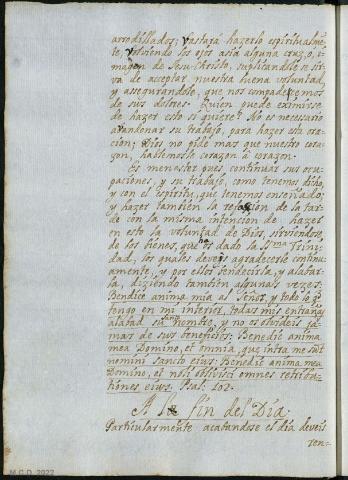 arrodillados; bastará hazerlo espiritualmen
te, volviendo los ojos asia alguna cruz, o, i
magen de Jesu-Christo, suplicandole se sir
va de aceptar nuestra buena voluntad,
y assegurandole, que nos compadecemos
de sus dolores. Quien puede eximirse
de hazer esto si quiere? No es necessario
abandonar su trabajo, para hazer esta ora
cion; Dios no pide mas que nuestro cora
zon, hablemosle corazon à corazon.
Es menester pues continuar sus ocu
paciones, y su trabajo, como tenemos dicho,
y con el espiritu, que tenemos enseñado;
y hazer tambien la refaccion de la tar
de con la misma intencion de hazer
en esto la voluntad de Dios, sirviendose
de los bienes, que os ha dado la SSma Trini
dad, los quales deveis agradecerle continu
amente, y por ellos bendecirla, y alabar
la, diziendo tambien algunas vezes:
Bendice anima mia al Señor, y todo lo q
tengo en mi interior, todas mis entrañas
alabad su santo nombre, y no os olvideis ja
mas de sus beneficios: Benedic anima
mea Domino, et omnia, quæ intra me sunt
nomini sancto eius. Benedic anima mea
Domino, et noli oblivisci omnes retribu
tiones eius. Psal. 102.
A la fin del Dia.
Particularmente acabandose el dia deveis
ten-
M.C.D. 2022